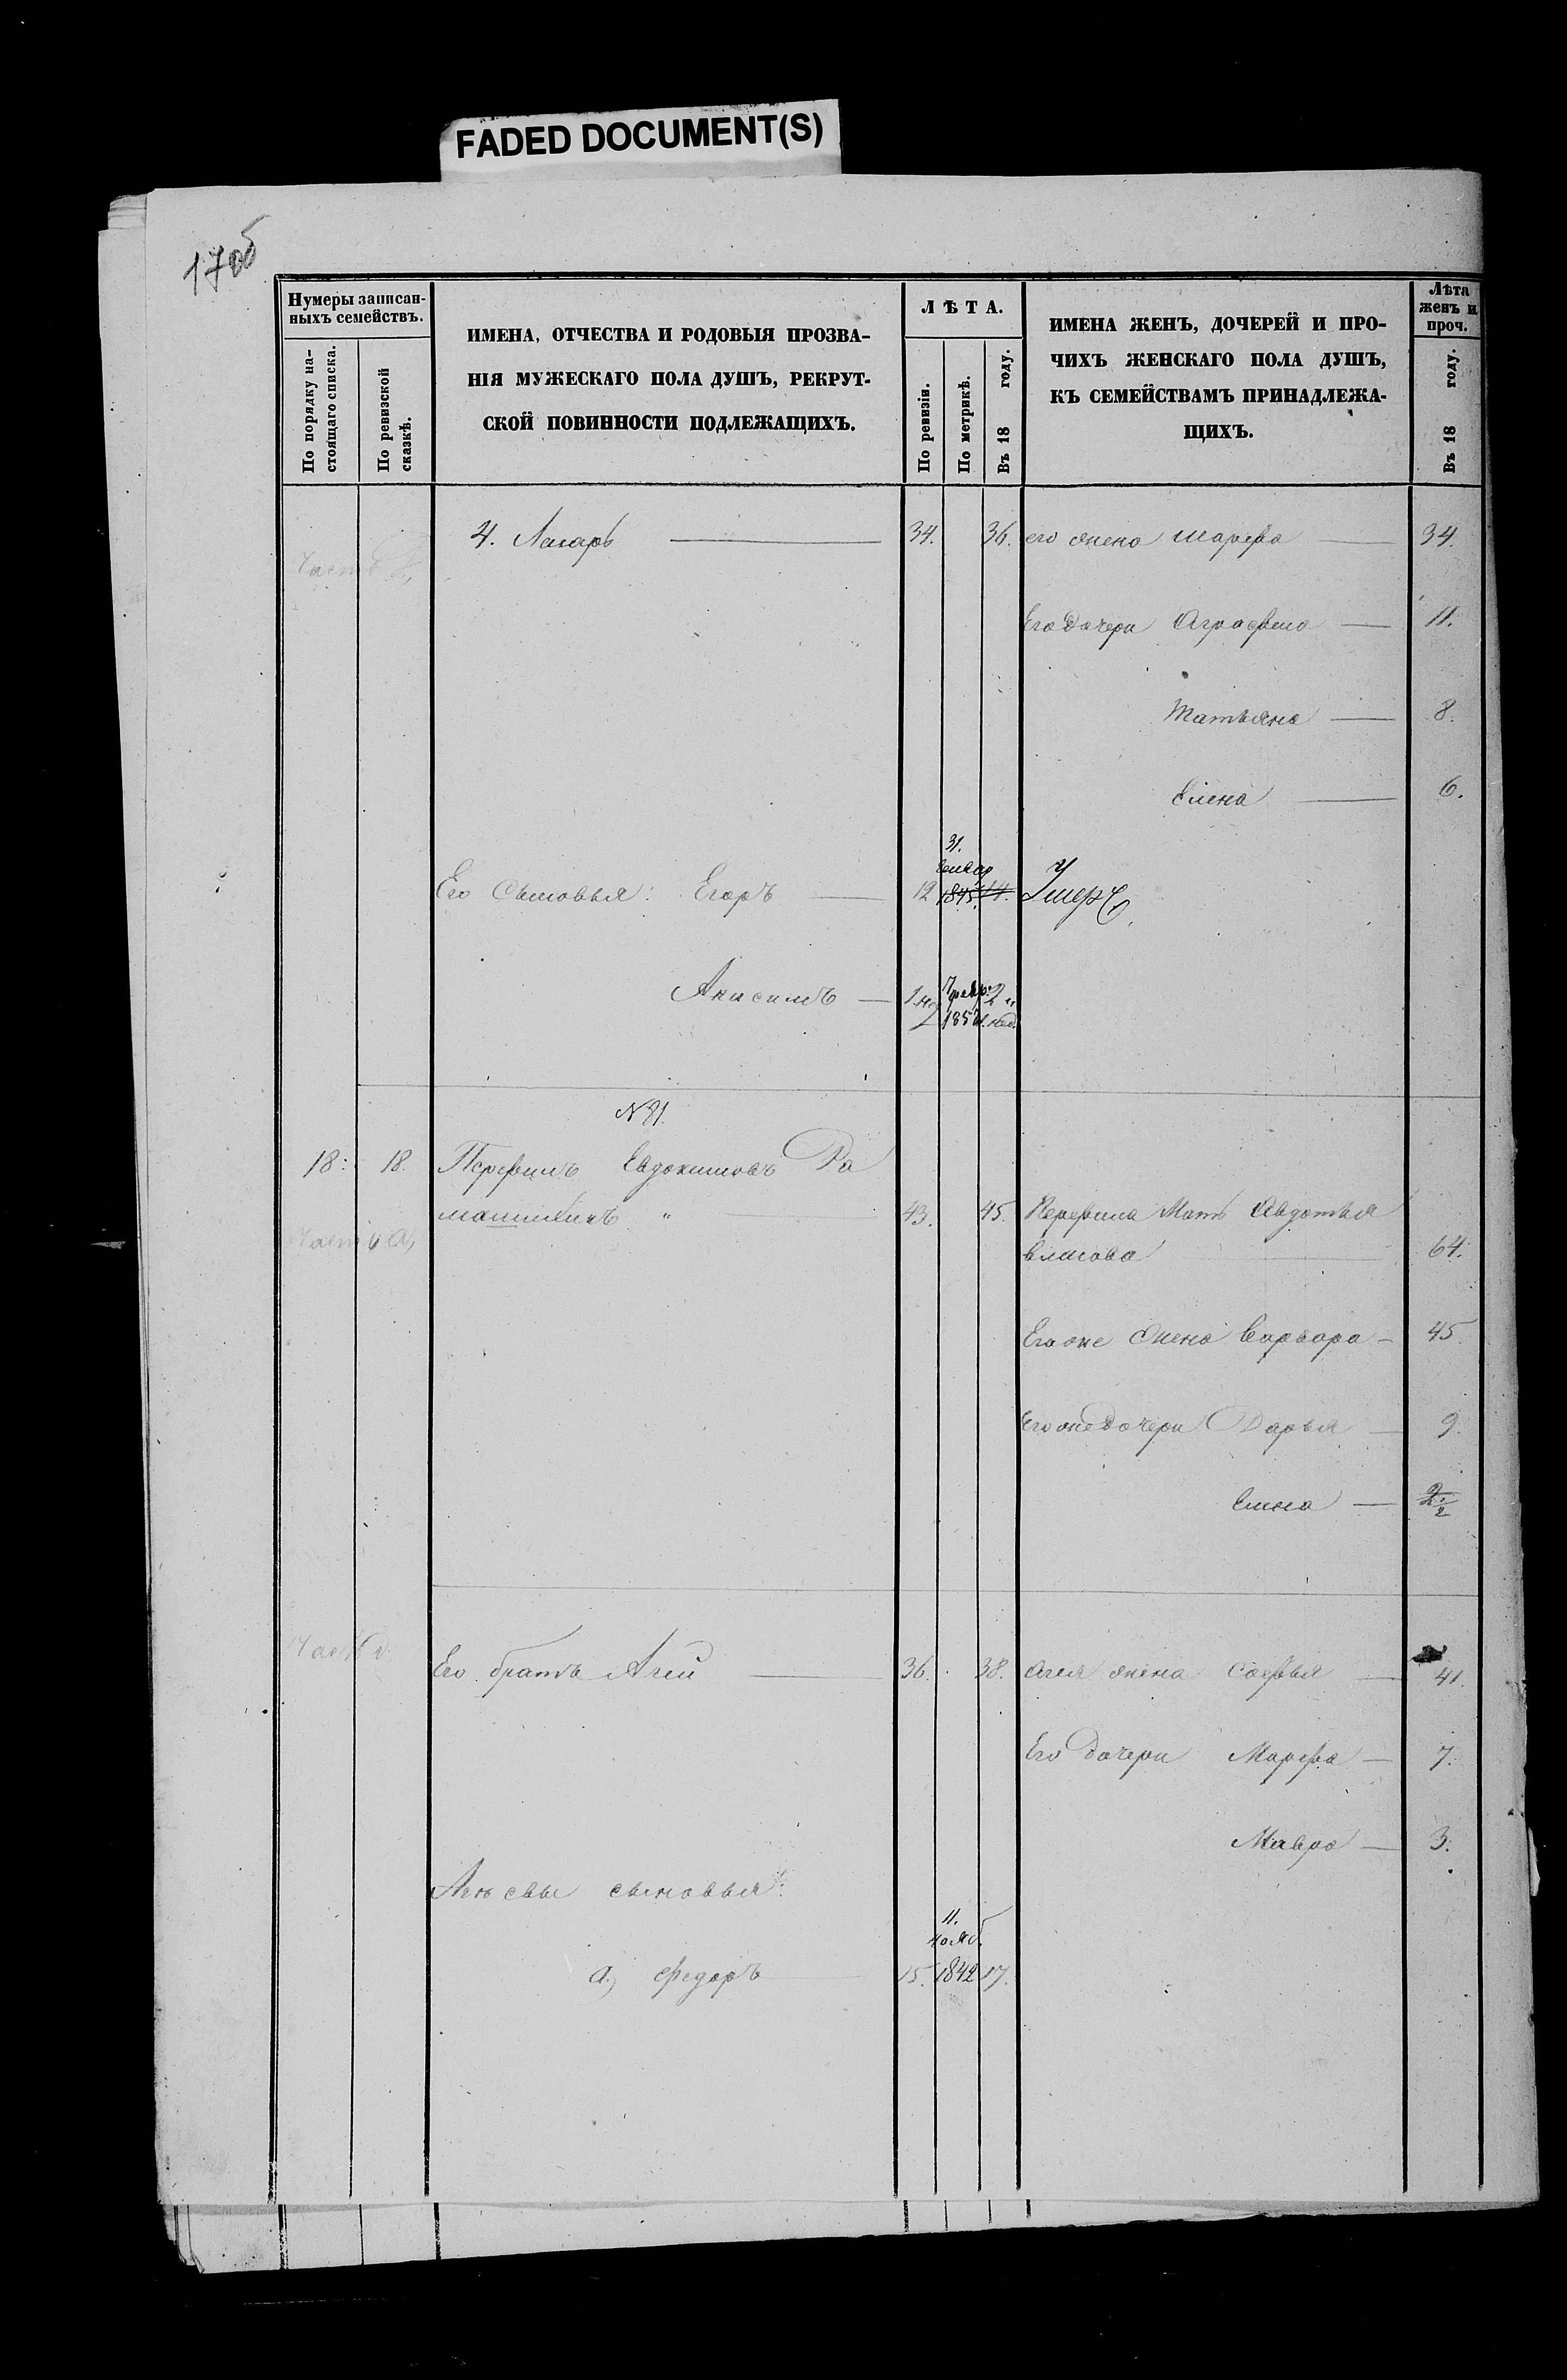 FADED DOCUMENT(S)
17об
Нумеры записан-
ныхъ семействъ.
По порядку на-
стоящаго списка.
По ревизской
сказкѣ.
ИМЕНА, ОТЧЕСТВА И РОДОВЫЯ ПРОЗВА-
НІЯ МУЖЕСКАГО ПОЛА ДУШЪ, РЕКРУТ-
СКОЙ ПОВИННОСТИ ПОДЛЕЖАЩИХЪ.
ЛѢТА.
По ревизіи.
По метрикѣ.
Въ 18 году.
ИМЕНА ЖЕНЪ, ДОЧЕРЕЙ И ПРО-
ЧИХЪ ЖЕНСКАГО ПОЛА ДУШЪ,
КЪ СЕМЕЙСТВАМЪ ПРИНАДЛЕЖА-
ЩИХЪ.
Лѣта
женъ и
проч.
Въ 18 году.
4. Лазарь 34. 36. его жена Марфа 34.
Часть
Его дочери Аграфена 11.
Татьяна 8.
Елена 6.
31.
Генвар
Его Сыновья: Егоръ 12 1845. 14. Умеръ
Анисимъ 1 нед 2
нед.
N 81.
18. 18. Перфилъ Евдокимовъ Ра
машкинъ 43. 45. Перфила Мать Авдотья
Часть а,
Власова 64.
Его же жена Варвара 45.
Его же дочери Дарья 9.
Елена 2
Часть
Его братъ Агей 36. 38. Агея жена Софья 41.
Его дочери Марфа 7.
Мавра 3.
Агѣевы сыновья:
11.
Нояб.
а, Федоръ 15. 1842 17.